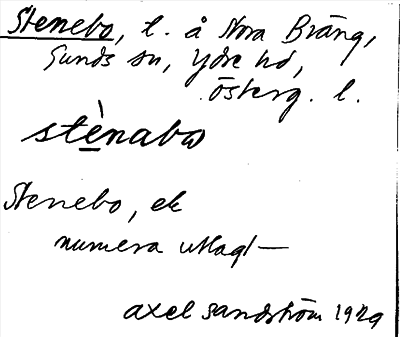 Stenebo, l. å Norra Bräng,
Sunds sn, Ydre hd,
Österg. l.
stènabω
Stenebo, ek
numera utlagt—
axel sandström 1929